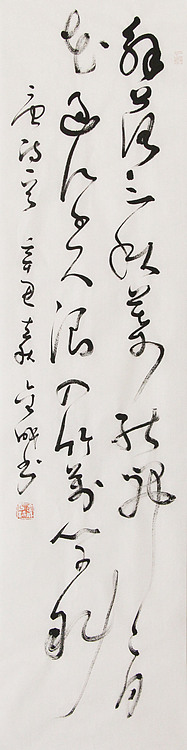 解落三秋葉能開二月
花過江千尺浪入竹萬竿斜
唐詩一首辛丑書